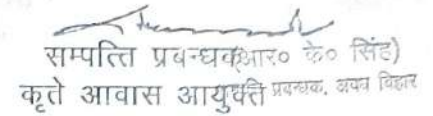 सम्पत्ति प्रबन्धक(आर० के० सिंह)
कृते आवास आयुक्त प्रबन्धक, अवध विहार